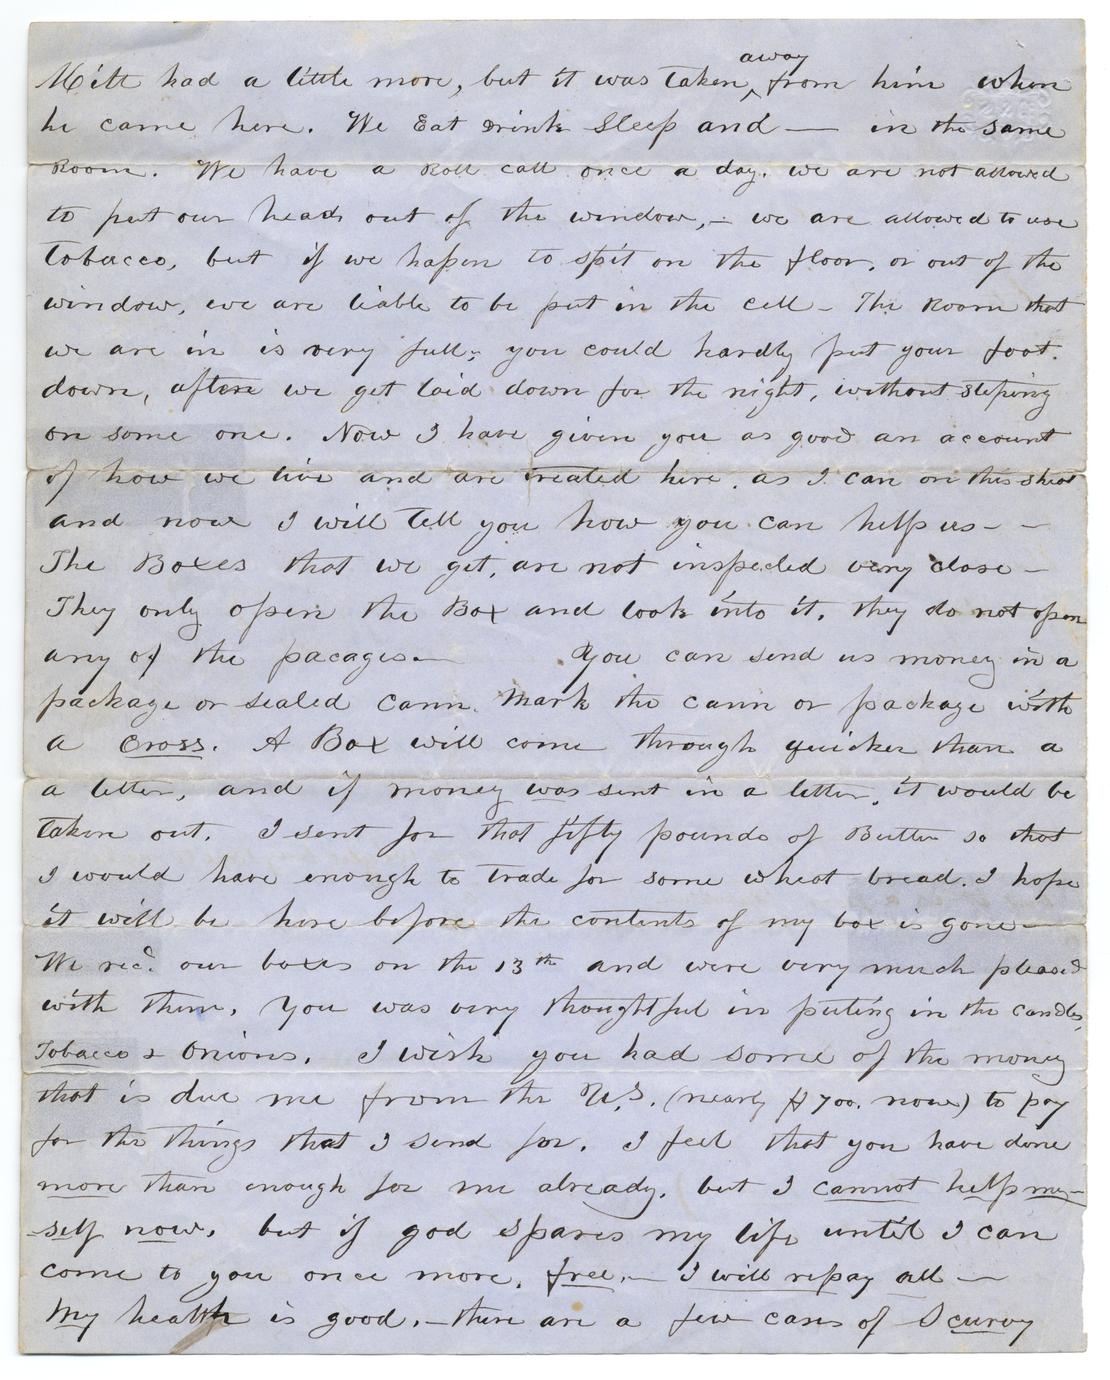 Milt had a little more, but it was taken ^away from him when
he came here. We Eat Drink Sleep and — in the same
Room. We have a Roll call once a day. we are not allowed
to put our heads out of the window, — we are allowed to use
Tobacco, but if we hapen to spit on the floor, or out of the
window, we are liable to be put in the cell — The Room that
we are in is very full; you could hardly put your foot.
down, after we get laid down for the night, without steping
on some one. Now I have given you as good an account
of how we live and are treated here, as I can on this sheet
and now I will tell you how you can help us — —
The Boxes that we get, are not inspected very close —
They only open the Box and look into it, they do not open
any of the pacages — You can send us money in a
package or sealed cann. Mark the cann or package with
a Cross. A Box will come through quicker than a
a letter, and if money was sent in a letter, it would be
taken out. I sent for that fifty pounds of Butter so that
I would have enough to trade for some wheat bread. I hope
it will be here before the contents of my box is gone —
We rec'd. our boxes on the 13th and were very much pleased
with them. You was very thoughtful in puting in the candles,
Tobacco & Onions. I wish you had some of the money
that is due me from the U.S. (nearly $700. now) to pay
for the things that I send for. I feel that you have done
more than enough for me already, but I cannot help my-
self now. but if god spares my life until I can
come to you once more. free. — I will repay all —
My health is good. — there are a few cases of Scurvy